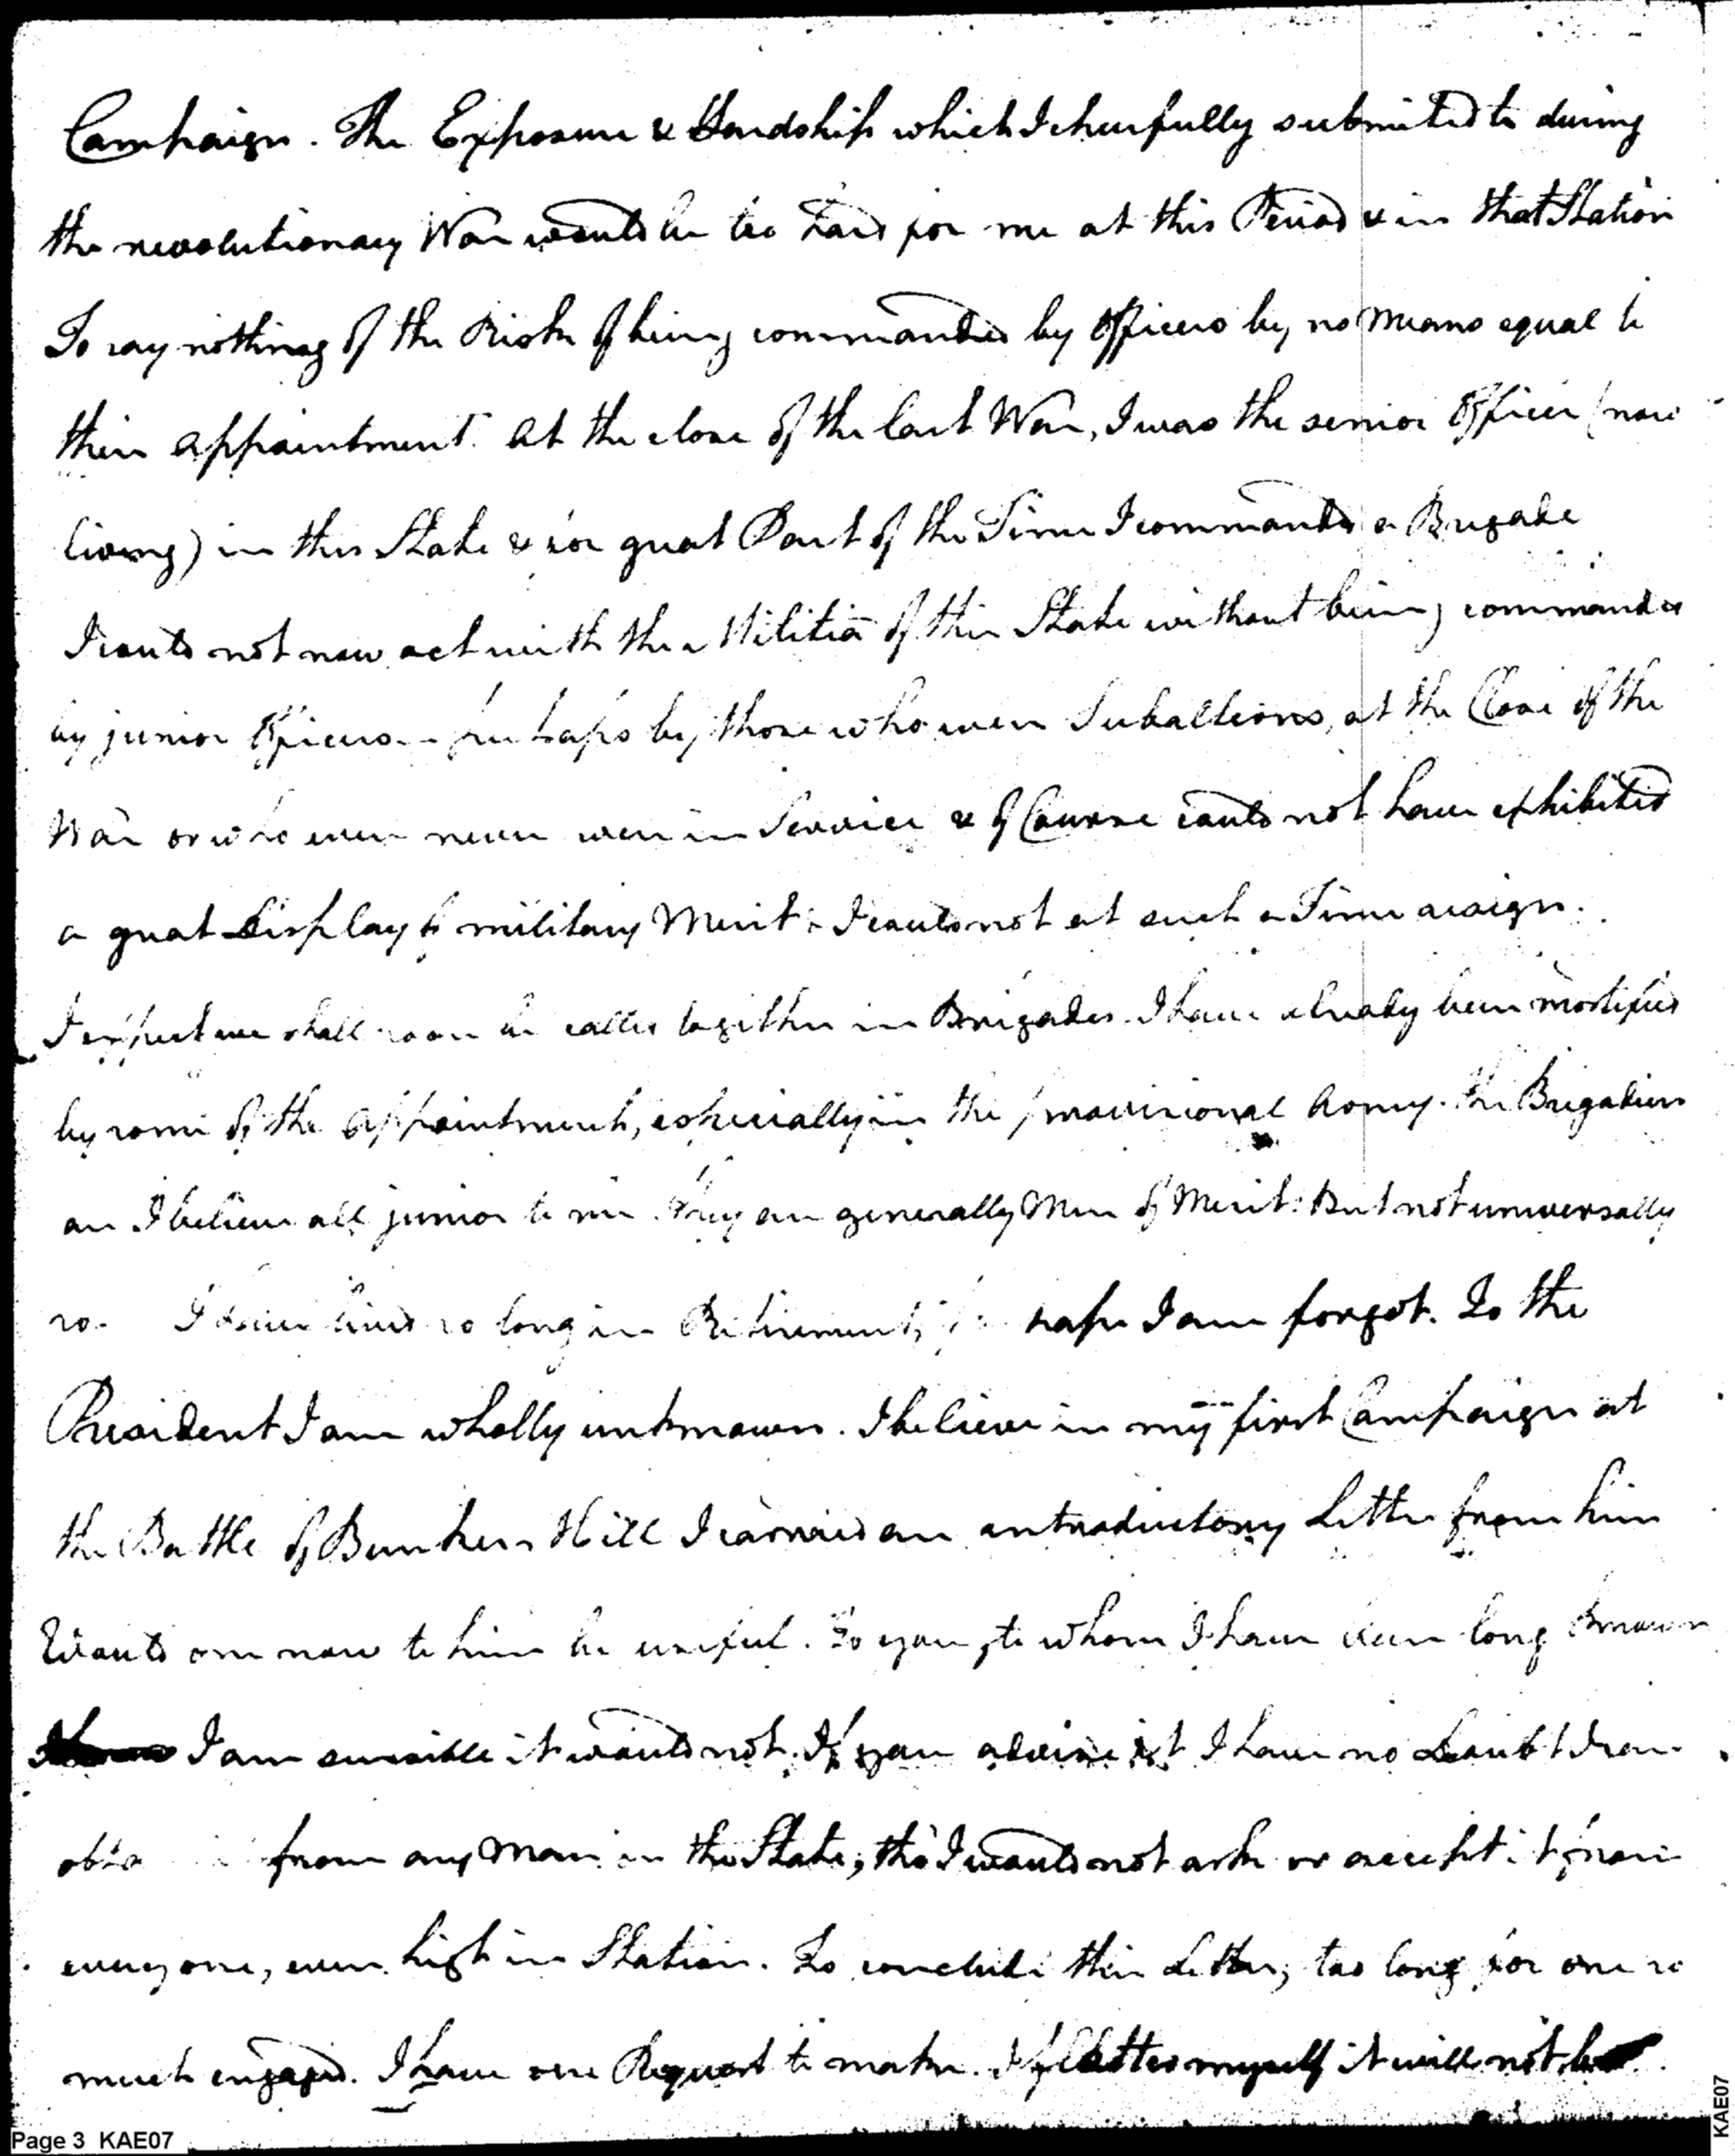 Campaign. The Exposure & Hardship which I chearfully submitted to during
the revolutionary War would be too hard for me at this Period & in that Station
To say nothing of the Risk of being commanded by Officers by no Means equal to
their appointment. At the close of the last War, I was the senior Officer (now
living) in this State & for great Part of the Time I commanded a Brigade
I could not now act with the Militia of this State without being commanded
by junior Officers - perhaps by those who were Subalterns, at the Close of the
War or who even never were in Service & of Course could not have exhibited
a great Display of military Merit: I could not at such a Time resign.
I expect we shall soon be called together in Brigades. I have already been mortified
by some of the appointments, especially in the provisional Army. The Brigadiers
are I believe all junior to me. They are generally Men of Merit: But not universally
so. I have lived so long in Retirement, haps I am forgot. To the
President I am wholly unknown. I believe in my first Campaign at
the Battle of Bunkers Hill I carried an introductory Letter from him
Would one now to him be useful. To you, to whom I have been long known
I am sensible it would not. If you advise it I have no Doubt I can
obta from any Man in the State, tho' I would not ask or accept it from
every one, even high in Station. To conclude this Letter, too long for one so
much engaged. I have one Request to make. I flatter myself it will not be
Page 3 KAE07
KAE07